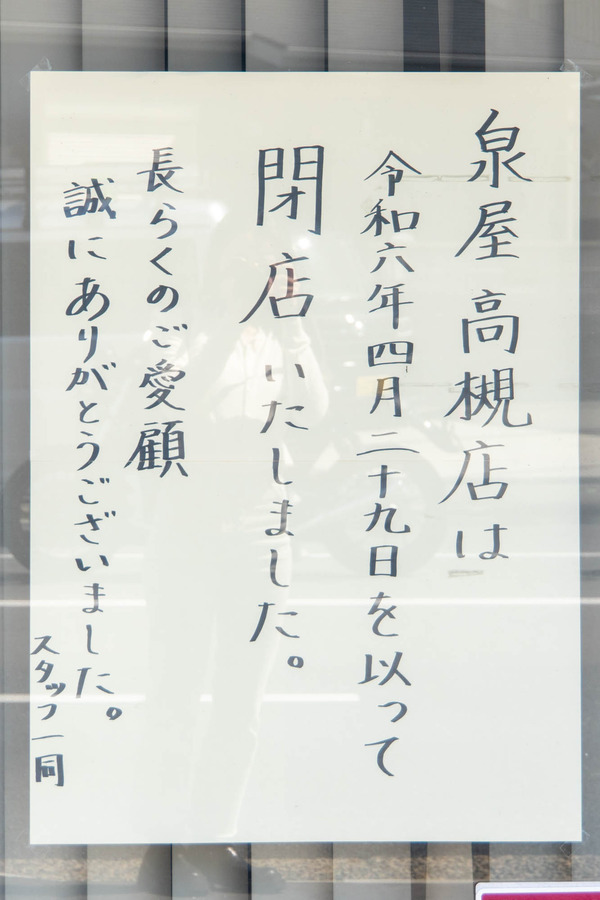 泉屋 高槻店は
令和六年四月二十九日を以って
閉店いたしました。
長らくのご愛顧
誠にありがとうございました。
スタッフ一同